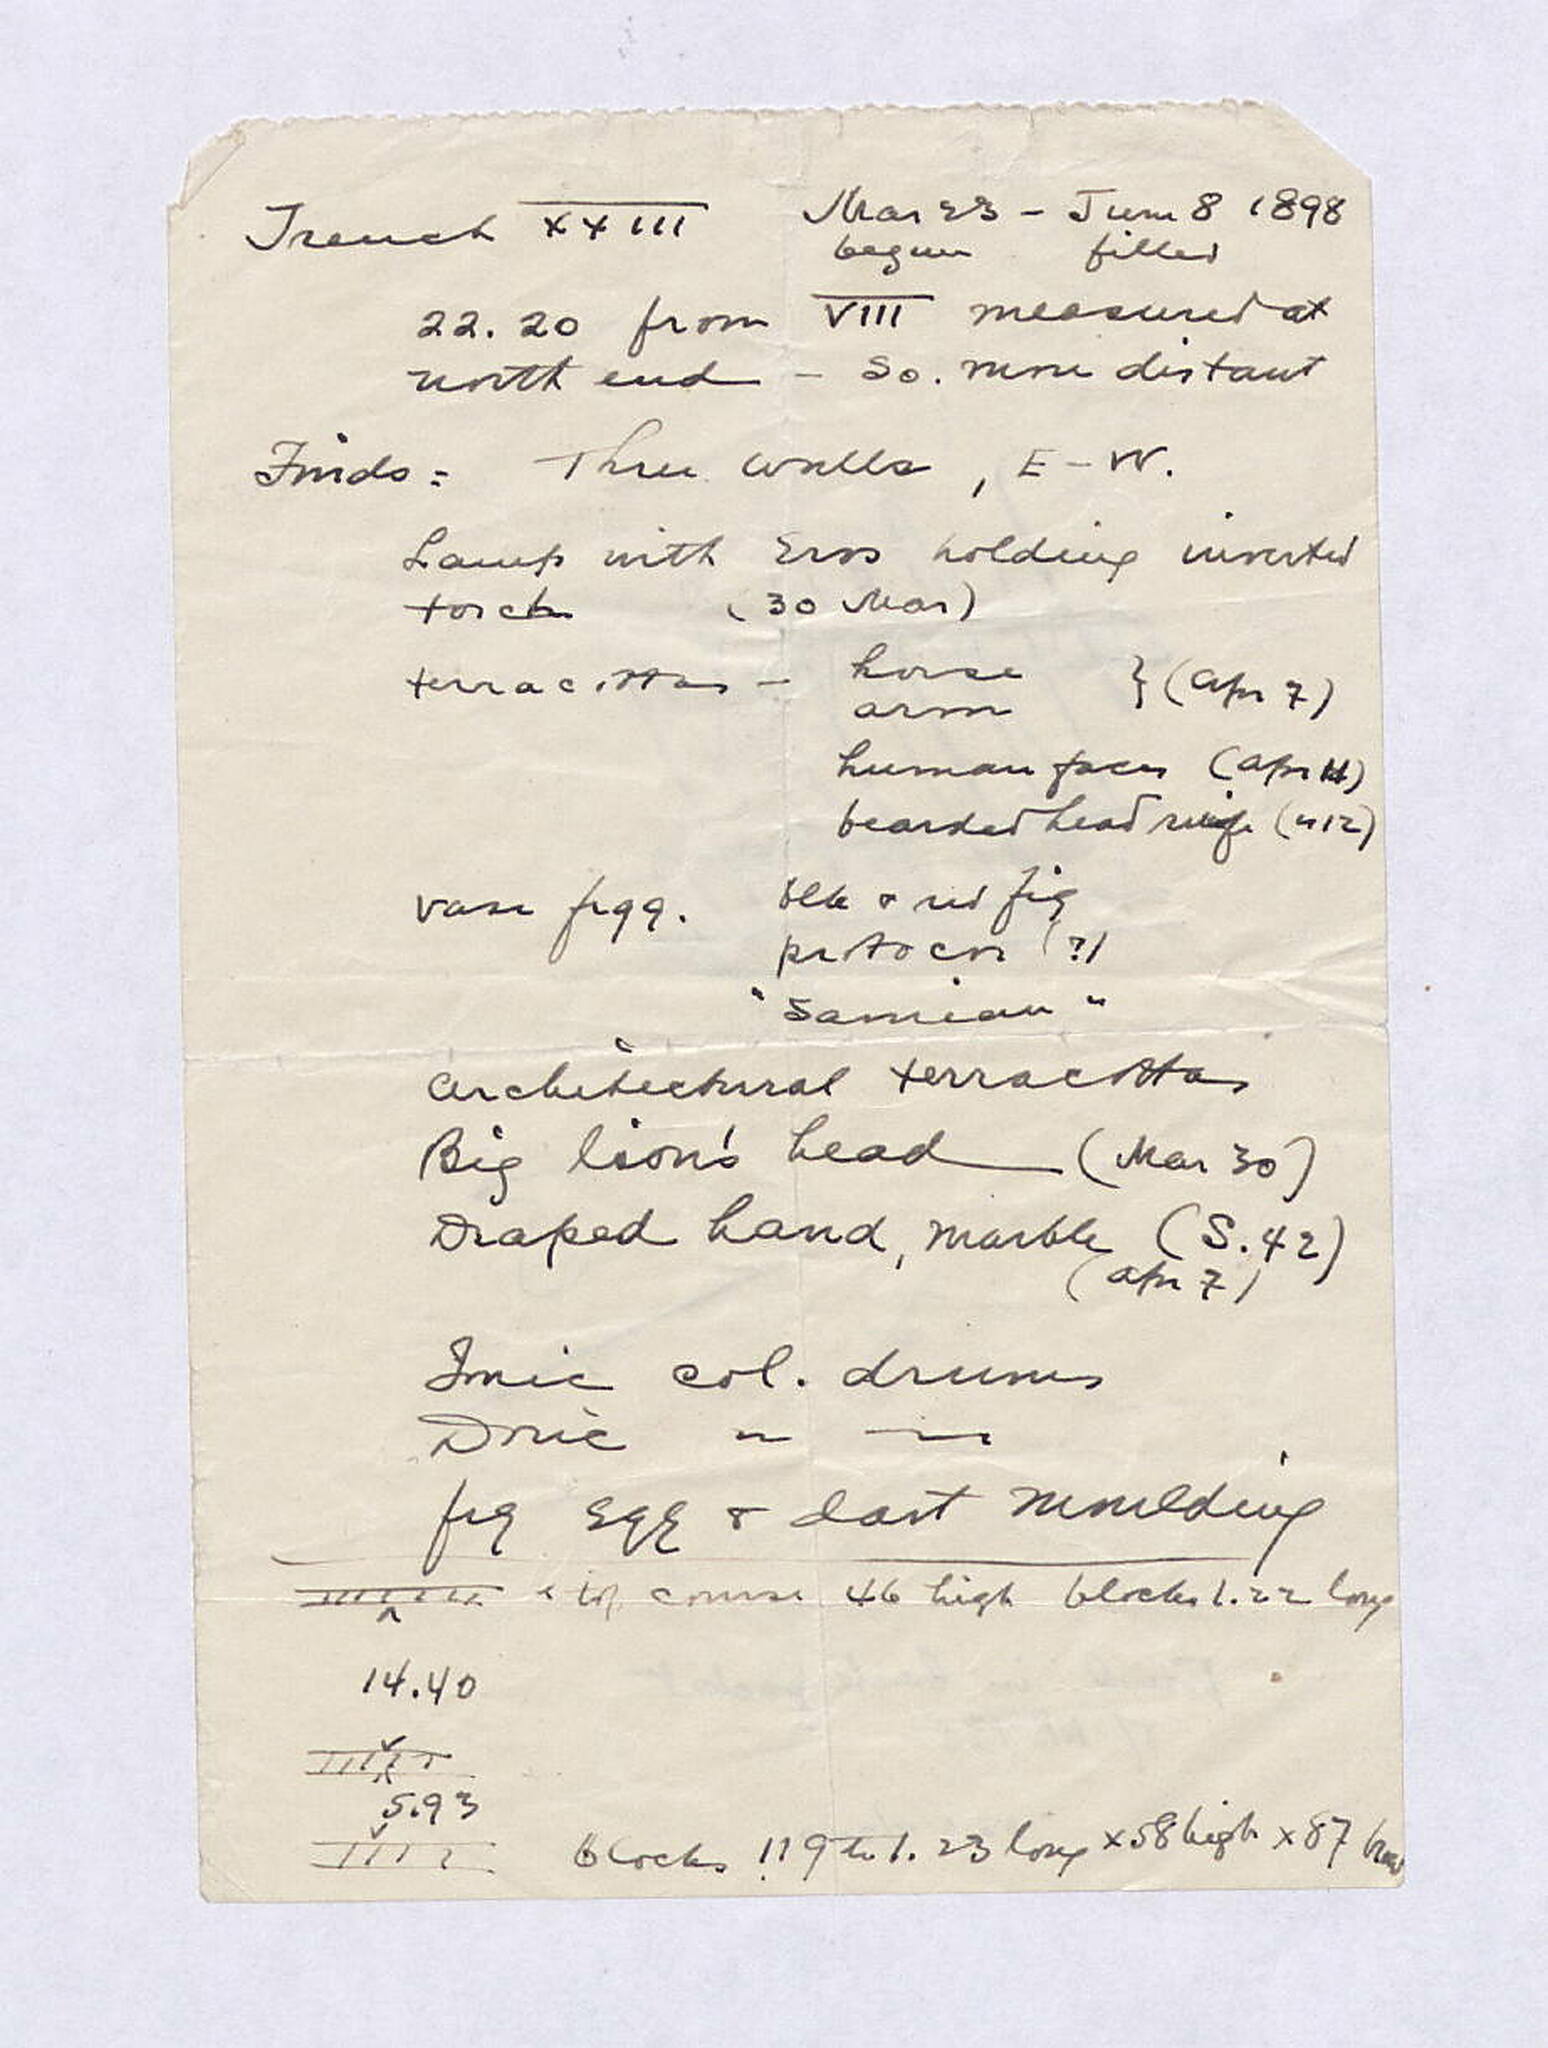 Trench XXIII Mar 23 - June 8 1898
begun filled
22.20 from VIII measured at
north end - So. more distant
Finds: Three walls, E-W.
Lamp with Eros holding inverted
torch (30 Mar)
terracottas - horse
arm } (Apr 7)
human faces (Apr 11)
bearded head (" 12)
vase frgg. blk & red fig
protocor (?)
"Samian"
Architectural terracottas
Big lion's head (Mar 30)
Draped hand, marble (S.42)
(Apr 7)
Ionic col. drums
Doric " "
frg egg & dart moulding
top course 46 high blocks 1.22 long
14.40
5.93
blocks 1.19 to 1.23 long x 58 high x 87 broad